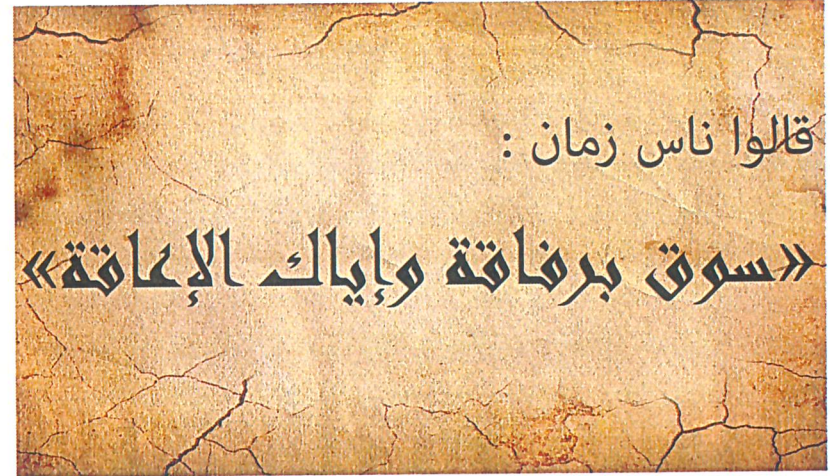 قالوا ناس زمان :
«سوق برفاقة وإياك الإعاقة»